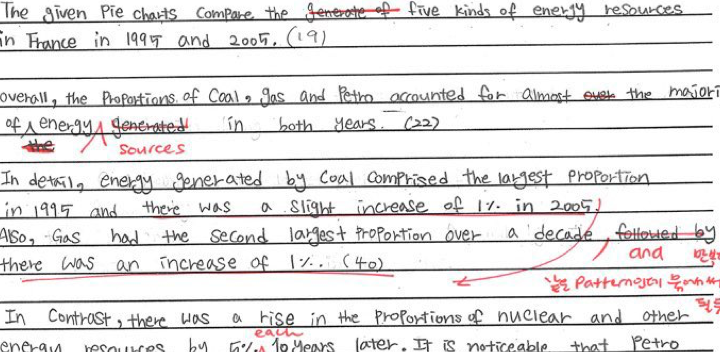 The given Pie charts compare the generate of five kinds of energy resources
in France in 1995 and 2005. (19)
overall, the proportions of Coal, gas and Petro accounted for almost over the majori
of the energy generated in both years. (22)
sources
In detail, energy generated by Coal comprised the largest proportion
in 1995 and there was a slight increase of 1% in 2005.
Also, Gas had the second largest proportion over a decade, followed by
and
there was an increase of 1%. (40)
Pattern인데
In contrast, there was a rise in the proportions of nuclear and other
each
energy resources by 5% 10 years later. It is noticeable that Petro